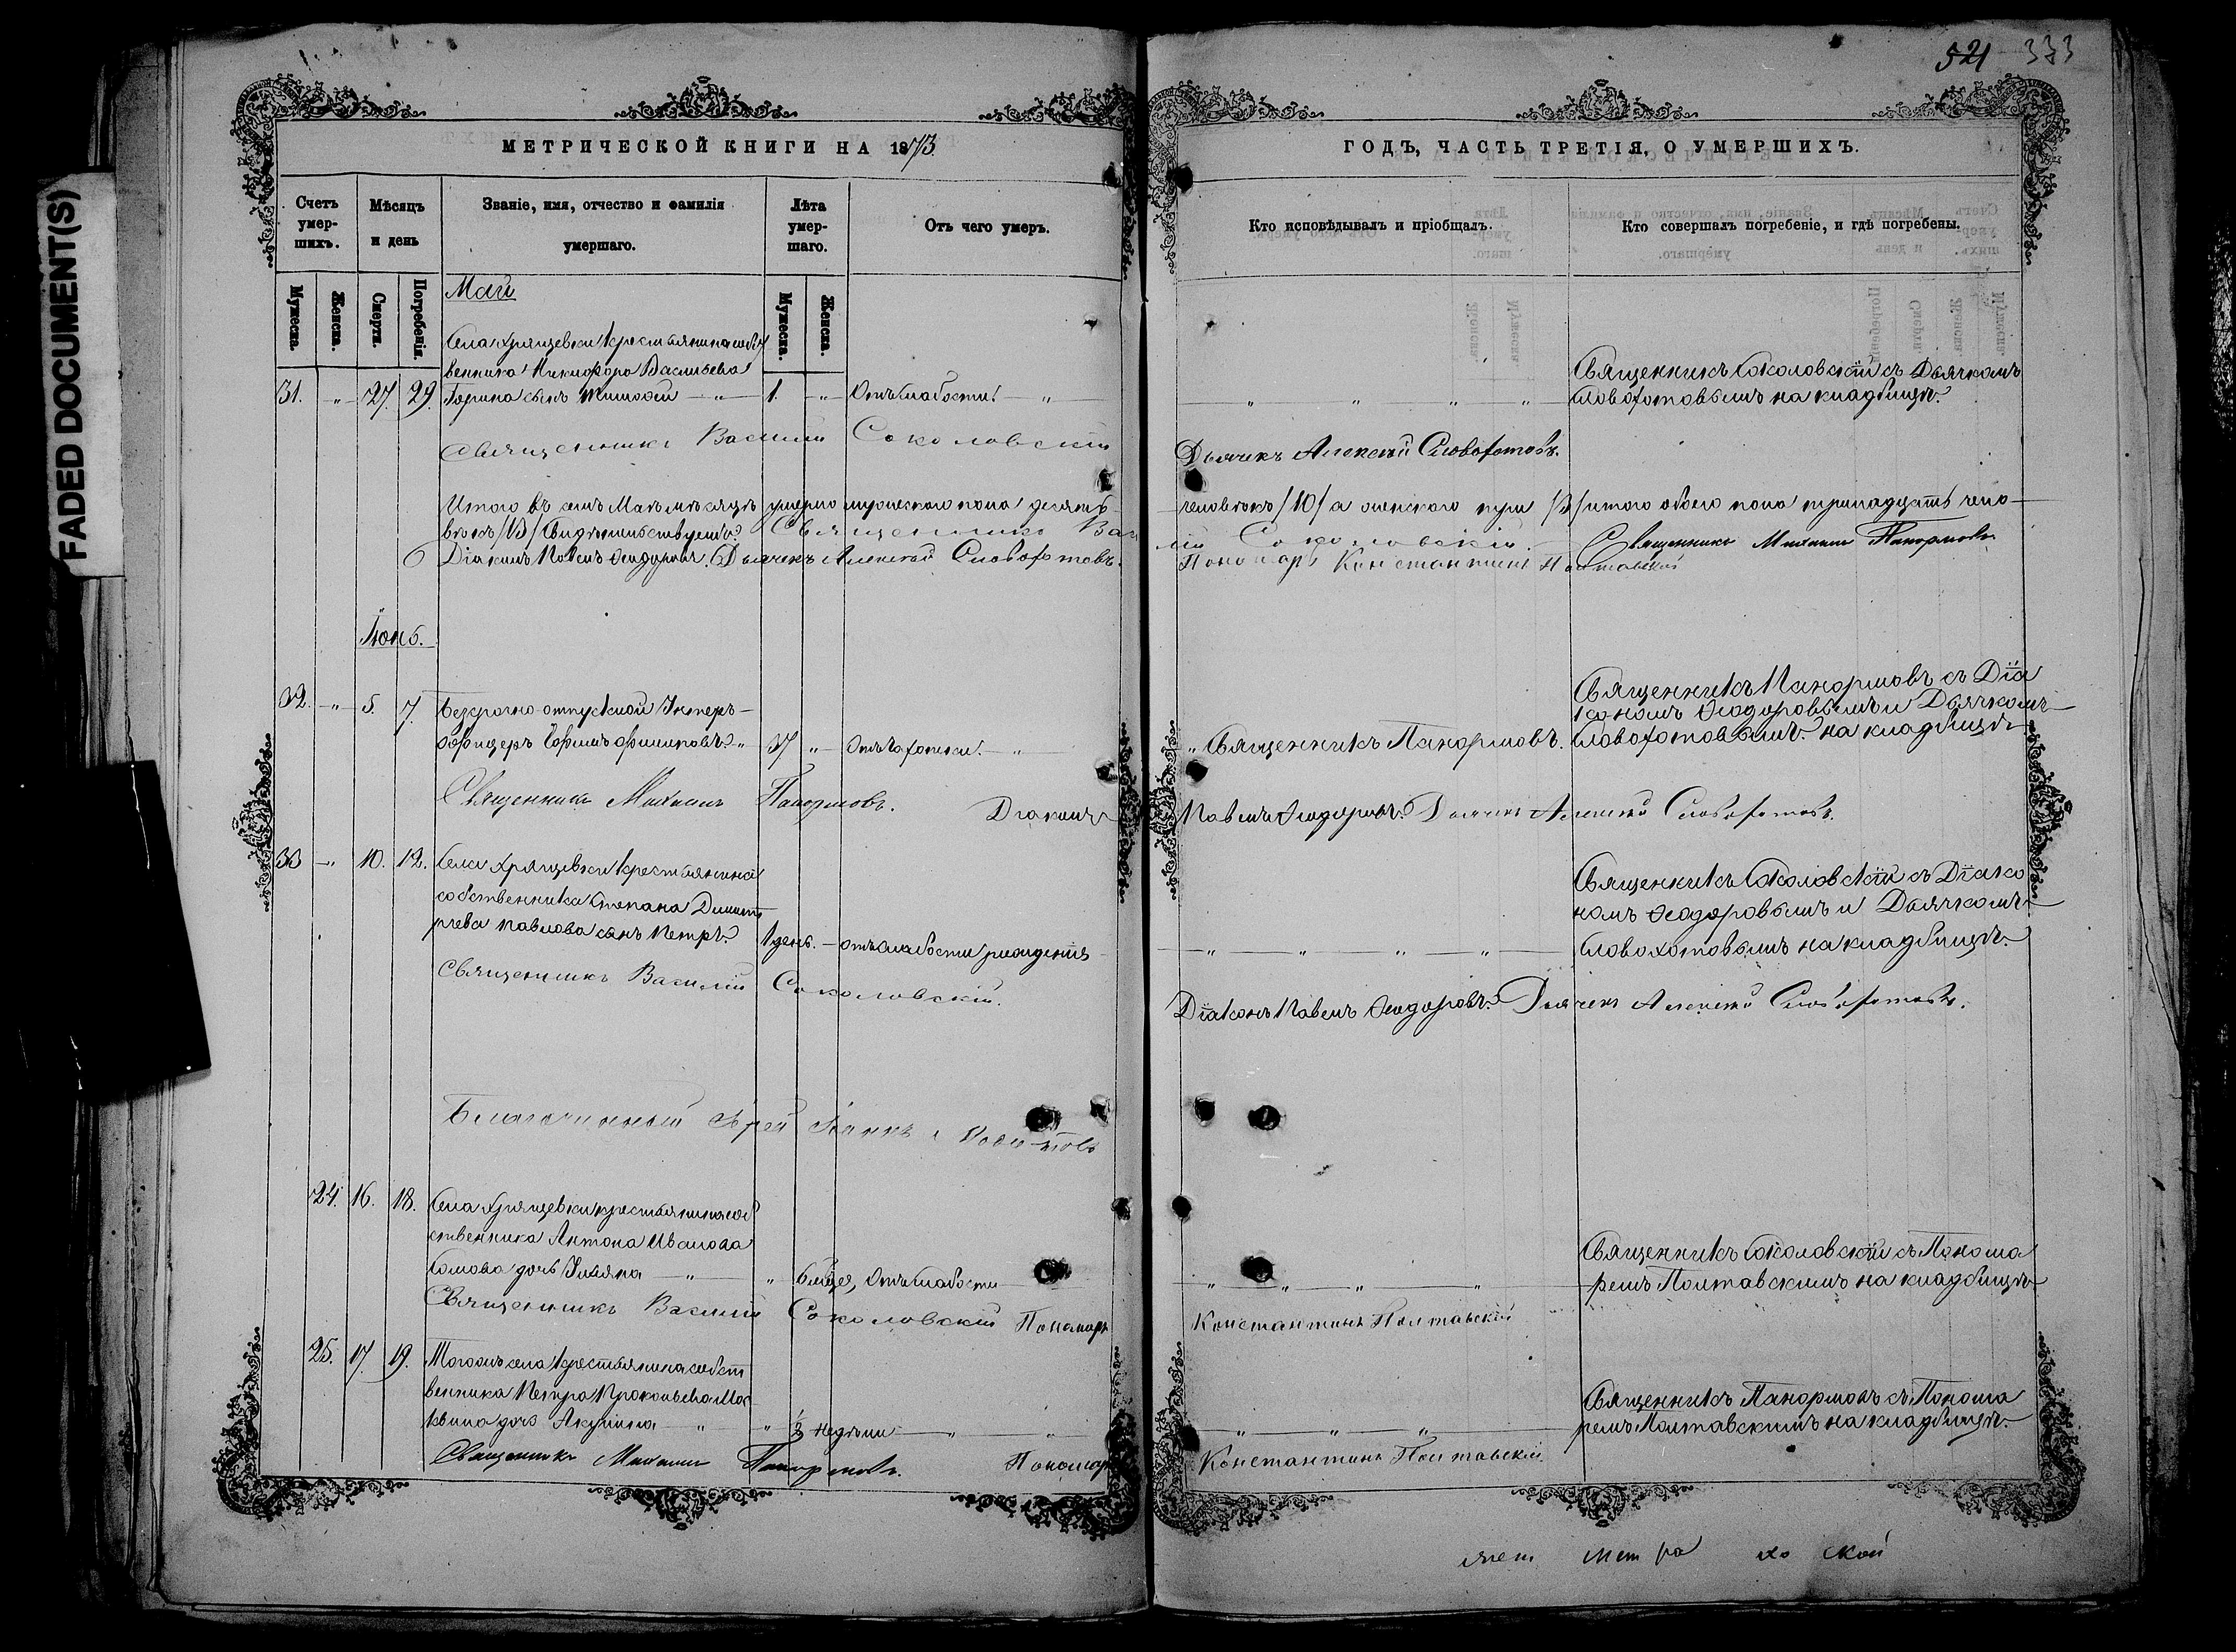 FADED DOCUMENT(S)
521 333
МЕТРИЧЕСКОЙ КНИГИ НА 1873.
ГОДЪ, ЧАСТЬ ТРЕТІЯ, О УМЕРШИХЪ.
Счетъ умер-шихъ.
Мѣсяцъ и день
Званіе, имя, отчество и фамилія умершаго.
Лѣта умер-шаго.
Отъ чего умеръ.
Кто исповѣдывалъ и пріобщалъ.
Кто совершалъ погребеніе, и гдѣ погребены.
Мужеска. Женска. Смерти. Погребенія. Мужеска. Женска.
Май
Села Хрящевки крестьянина собст
венника Никифора Васильева
31. „ 27. 29. сынъ 1. „ Отъ слабости „
Священникъ Соколовскій съ Дьячкомъ
Словохотовымъ на кладбищѣ.
Священникъ Василій Соколовскій
Дьячекъ Алексѣй Словохотовъ.
Итого въ семъ Маѣ мѣсяцѣ умерло мужескаго пола десять
человѣкъ /10/ а женскаго три /3/ итого обоего пола тринадцать чело
вѣкъ /13/ Свидѣтельствуемъ: Священникъ Васи
лій Соколовскій. Священникъ Михаилъ Панормовъ.
Діаконъ Павелъ Ѳеодоровъ. Дьячекъ Алексѣй Словохотовъ.
Пономарь Константинъ Полтавскій
Іюнь.
32. „ 5. 7. Безсрочно отпускной Унтеръ-
офицеръ Филиповъ. „ 37 „ Отъ чахотки. „
Священникъ Панормовъ.
Священникъ Панормовъ съ Діа
кономъ Ѳеодоровымъ и Дьячкомъ
Словохотовымъ. на кладбищѣ
Священникъ Михаилъ Панормовъ. Діаконъ
Павелъ Ѳеодоровъ. Дьячекъ Алексѣй Словохотовъ.
33 „ 10. 12. Села Хрящевки крестьянина
собственника Степана Димит
ріева Павлова сынъ Петръ. 1 день. отъ слабости рожденія
Священникъ Соколовскій съ Діако
номъ Ѳеодоровымъ и Дьячкомъ
Словохотовымъ на кладбищѣ.
Священникъ Василій Соколовскій.
Діаконъ Павелъ Ѳеодоровъ. Дьячекъ Алексѣй Словохотовъ.
Благочинный Іерей
24. 16. 18. Села Хрящевки крестьянина соб
ственника Антона Иванова
дочь Ульяна „ „ Отъ слабости
Священникъ Соколовскій съ Понома
ремъ Полтавскимъ на кладбищѣ
Священникъ Василій Соколовскій Пономарь
Константинъ Полтавскій
25. 17. 19. Тогожъ села крестьянина собст
венника Петра Прокопьева Мос
квина дочь Акулина „ „ 2 недѣли „
Священникъ Панормовъ съ Понома
ремъ Полтавскимъ на кладбищѣ.
Священникъ Михаилъ Панормовъ. Пономарь
Константинъ Полтавскій.